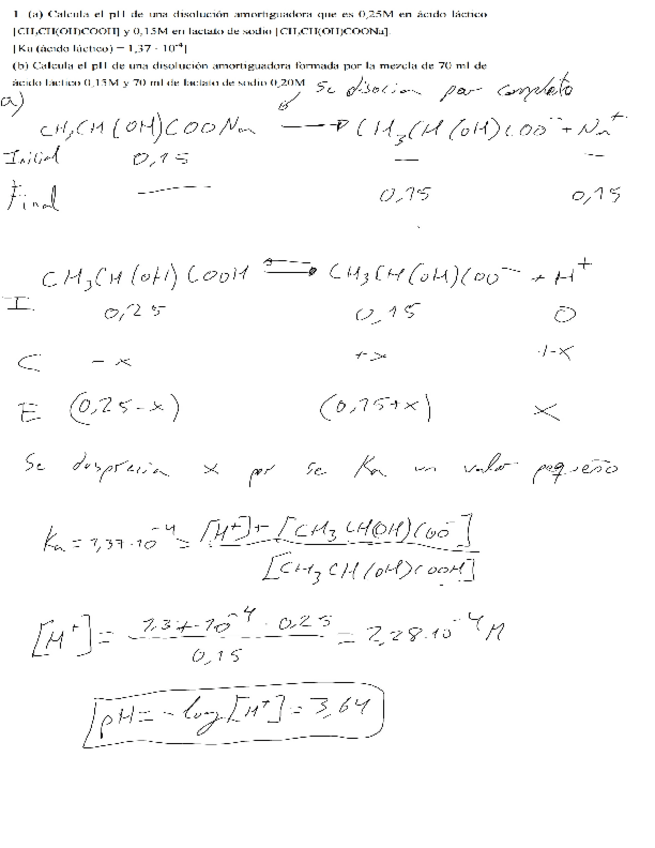 1 (a) Calcula el pH de una disolución amortiguadora que es 0,25M en ácido láctico
[CH₃CH(OH)COOH] y 0,15M en lactato de sodio [CH₃CH(OH)COONa].
[Ka (ácido láctico) = 1,37 · 10⁻⁴]
(b) Calcula el pH de una disolución amortiguadora formada por la mezcla de 70 ml de
ácido láctico 0,15M y 70 ml de lactato de sodio 0,20M
Se disocian por completo
a)
CH₃CH(OH)COONa ⟶ CH₃CH(OH)COO⁻ + Na⁺
Inicial 0,15 — —
Final — 0,15 0,15
CH₃CH(OH)COOH ⇌ CH₃CH(OH)COO⁻ + H⁺
I. 0,25 0,15 0
C -x +x +x
E (0,25-x) (0,15+x) x
Se desprecia x por se Ka un valor pequeño
Ka = 1,37·10⁻⁴ = [H⁺]+[CH₃CH(OH)COO⁻] / [CH₃CH(OH)COOH]
[H⁺] = 1,37·10⁻⁴ · 0,25 / 0,15 = 2,28·10⁻⁴ M
pH = -log[H⁺] = 3,64